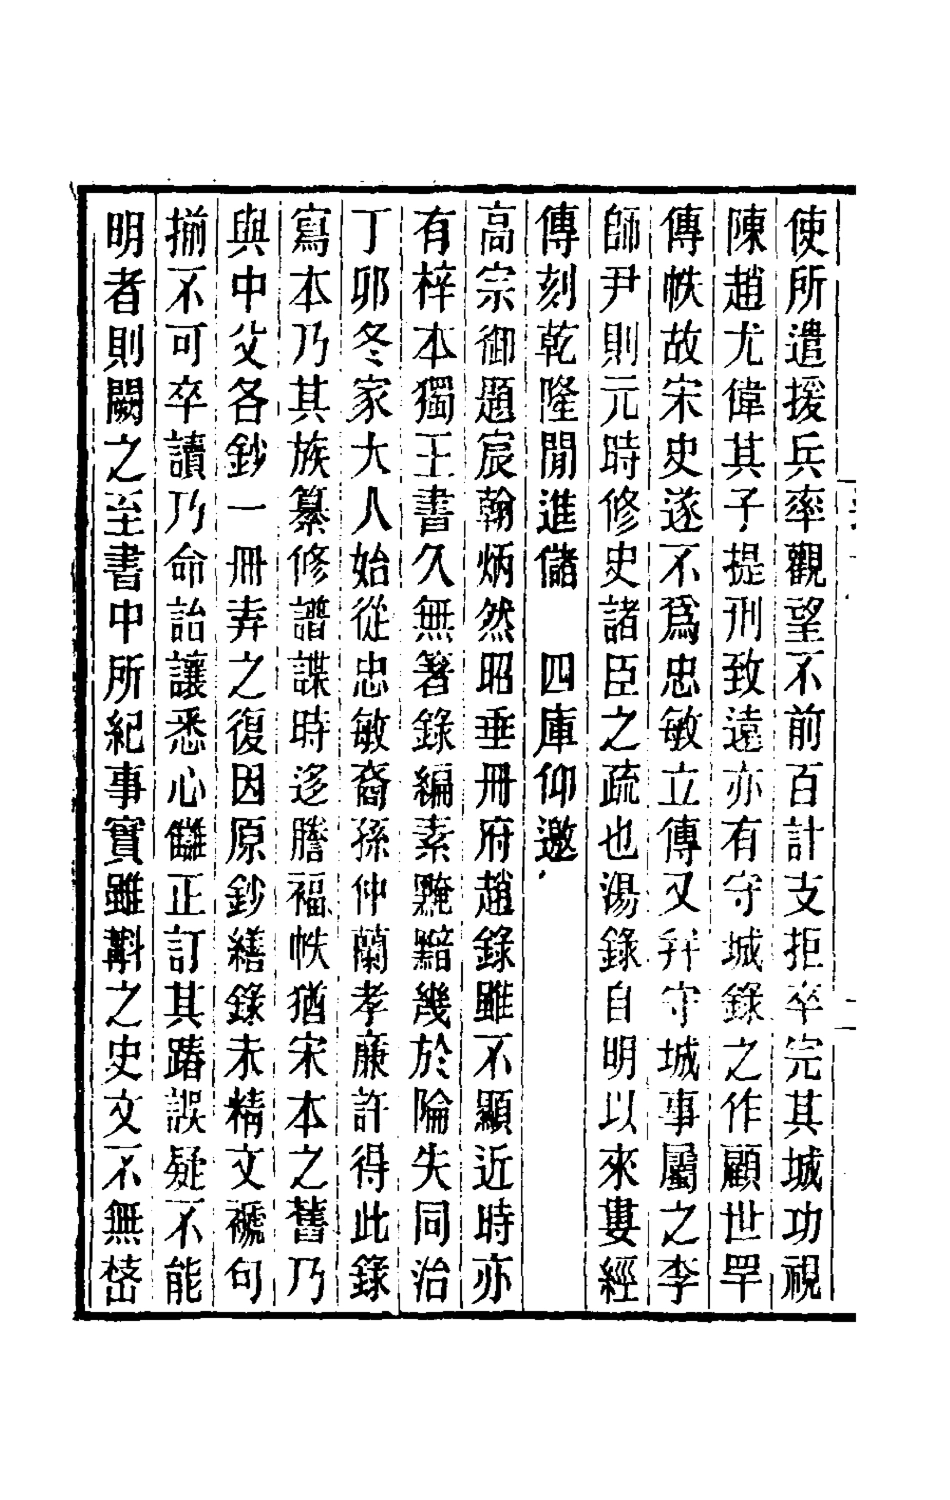 使所遣援兵率觀望不前百計支拒卒完其城功視
陳趙尤偉其子提刑致遠亦有守城錄之作顧世罕
傳帙故宋史遂不爲忠敏立傳又幷守城事屬之李
師尹則元時修史諸臣之疏也湯錄自明以來婁經
傳刻乾隆閒進儲　四庫仰邀
高宗御題宸翰炳然昭垂冊府趙錄雖不顯近時亦
有梓本獨王書久無著錄編素黤黯幾於隃失同治
丁卯冬家大人始從忠敏裔孫仲蘭孝廉許得此錄
寫本乃其族纂修譜諜時迻謄福帙猶宋本之舊乃
與中父各鈔一冊弆之復因原鈔繕錄未精文褫句
揃不可卒讀乃命詒讓悉心讎正訂其踳誤疑不能
明者則闕之至書中所紀事實雖斠之史文不無榰